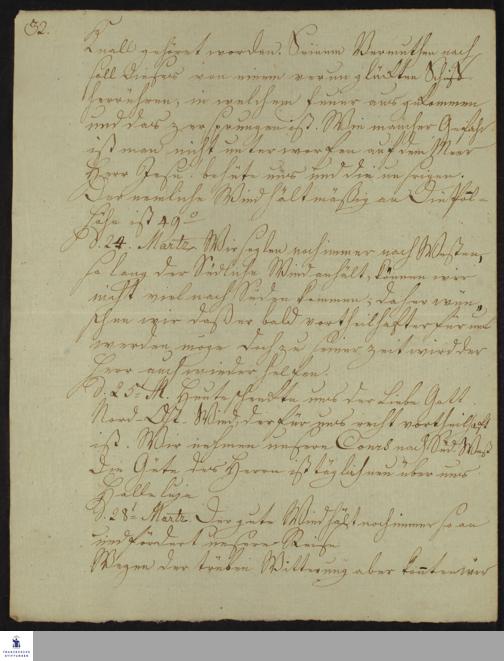 32.
Knall gehöret worden. Seinem Vermuthen nach
soll dieses von einem verunglückten Schiff
herrühren, in welchem Feuer ausgekommen
und das zersprungen ist. Wie mancher Gefahr
ist man nicht unterworfen auf dem Meer
Herr Jesu behüte uns und die unsrigen.
Der nemliche Wind hält mäßig an. Die Pol-
höhe ist 49°
d. 24. Martz. Wir seglen noch immer nach Westen,
so lang der Südliche Wind anhält, können wir
nicht viel nach Süden kommen, daher wün-
schen wir daß er bald vortheilhafter für uns
werden möge doch zu seiner Zeit wird der
Herr auch wieder helfen.
d. 25 M. Heute schenkte uns der Liebe Gott
Nord-Ost Wind, der für uns recht vortheilhaft
ist. Wir nehmen unsern Cours nach Süd-West
Die Güte des Herrn ist täglich neu über uns
Halleluja
d. 28 Martz. Der gute Wind hält noch immer so an
und fördert unsere Reise
Wegen der trüben Witterung aber konnten wir
FRANCKESCHE
STIFTUNGEN